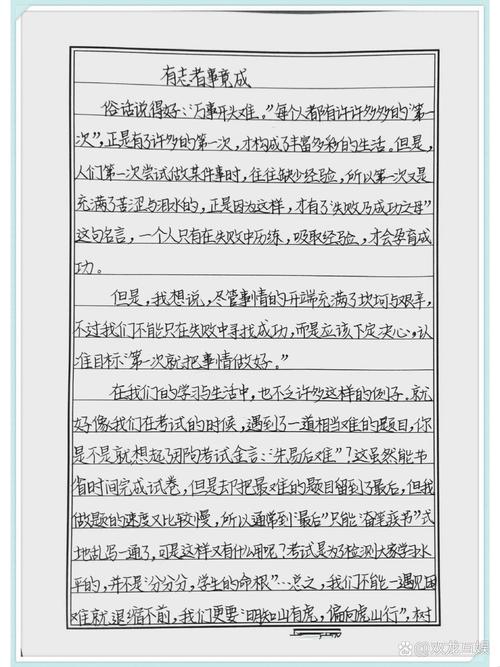 有志者事竟成
俗话说得好:“万事开头难。”每个人都有许许多多的“第一
次”,正是有了许多的第一次,才构成了丰富多彩的生活。但是,
人们第一次尝试做某件事时,往往缺少经验,所以第一次又是
充满了苦涩与泪水的,正是因为这样,才有了“失败乃成功之母”
这句名言,一个人只有在失败中历练,吸取经验,才会孕育成
功。
但是,我想说,尽管事情的开端充满了坎坷与艰辛,
不过我们不能只在失败中寻找成功,而是应该下定决心,认
准目标“第一次就把事情做好。”
在我们的学习与生活中,也不乏许多这样的例子。就
好像我们在考试的时候,遇到了一道相当难的题目,你
是不是就想起了闭的考试金言:“先易后难”?这虽然能节
省时间完成试卷,但是却把最难的题目留到了最后,但我
做题的速度又比较慢,所以通常到“最后”只能“奋笔疾书”式
地乱写一通了,可是这样又有什么用呢?考试是为了检测大家学习水
平的,并不是“分分分,学生的命根”…总之,我们不能一遇见困
难就退缩不前,我们更要“明知山有虎,偏向虎山行”,树
@双龙互娱